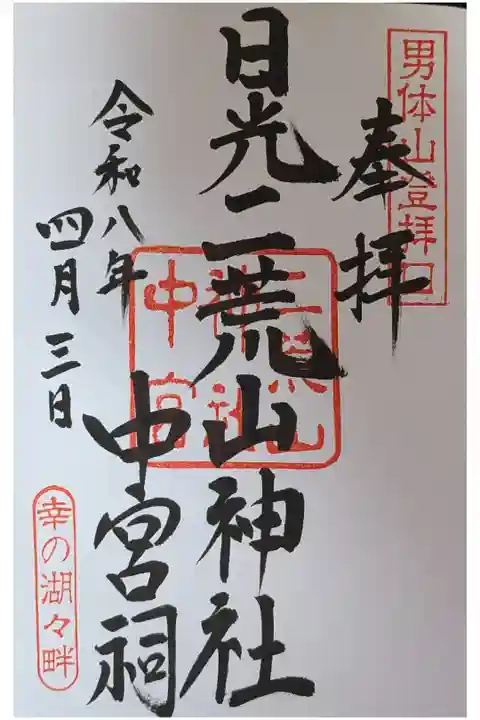 男体山登拝口
奉拝
日光二荒山神社
中宮祠
令和八年
四月三日
幸の湖々畔